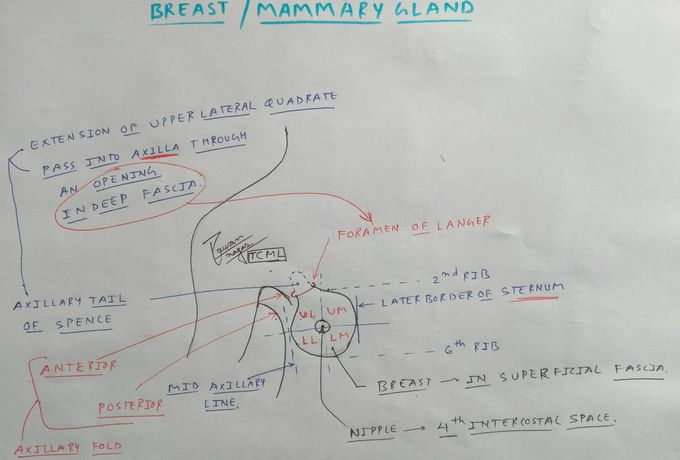 BREAST / MAMMARY GLAND
EXTENSION OF UPPER LATERAL QUADRATE
PASS INTO AXILLA THROUGH
AN OPENING
IN DEEP FASCIA.
FORAMEN OF LANGER
TCML
2nd RIB
AXILLARY TAIL
OF SPENCE
LATER BORDER OF STERNUM
UL UM
LL LM
6th RIB
ANTERIOR
MID AXILLARY
LINE.
BREAST → IN SUPERFICIAL FASCIA.
POSTERIOR
NIPPLE → 4th INTERCOSTAL SPACE.
AXILLARY FOLD